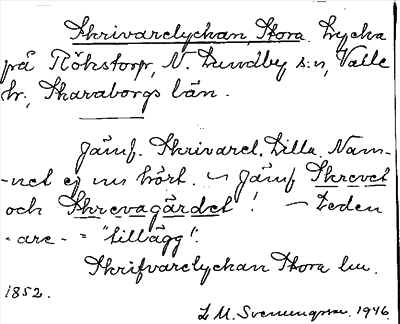 Skrivarelyckan, Stora. Lycka
på Rökstorp, N. Lundby s:n, Valle
hr, Skaraborgs län.
Jämf. Skrivarel. Lilla. Nam-
-net ej nu hört. – Jämf Skrevet
och Skrevagärdet! – Leden
-are- = "tillägg".
Skrifvarelyckan Stora lm.
1852.
L M. Svenungsson. 1946.